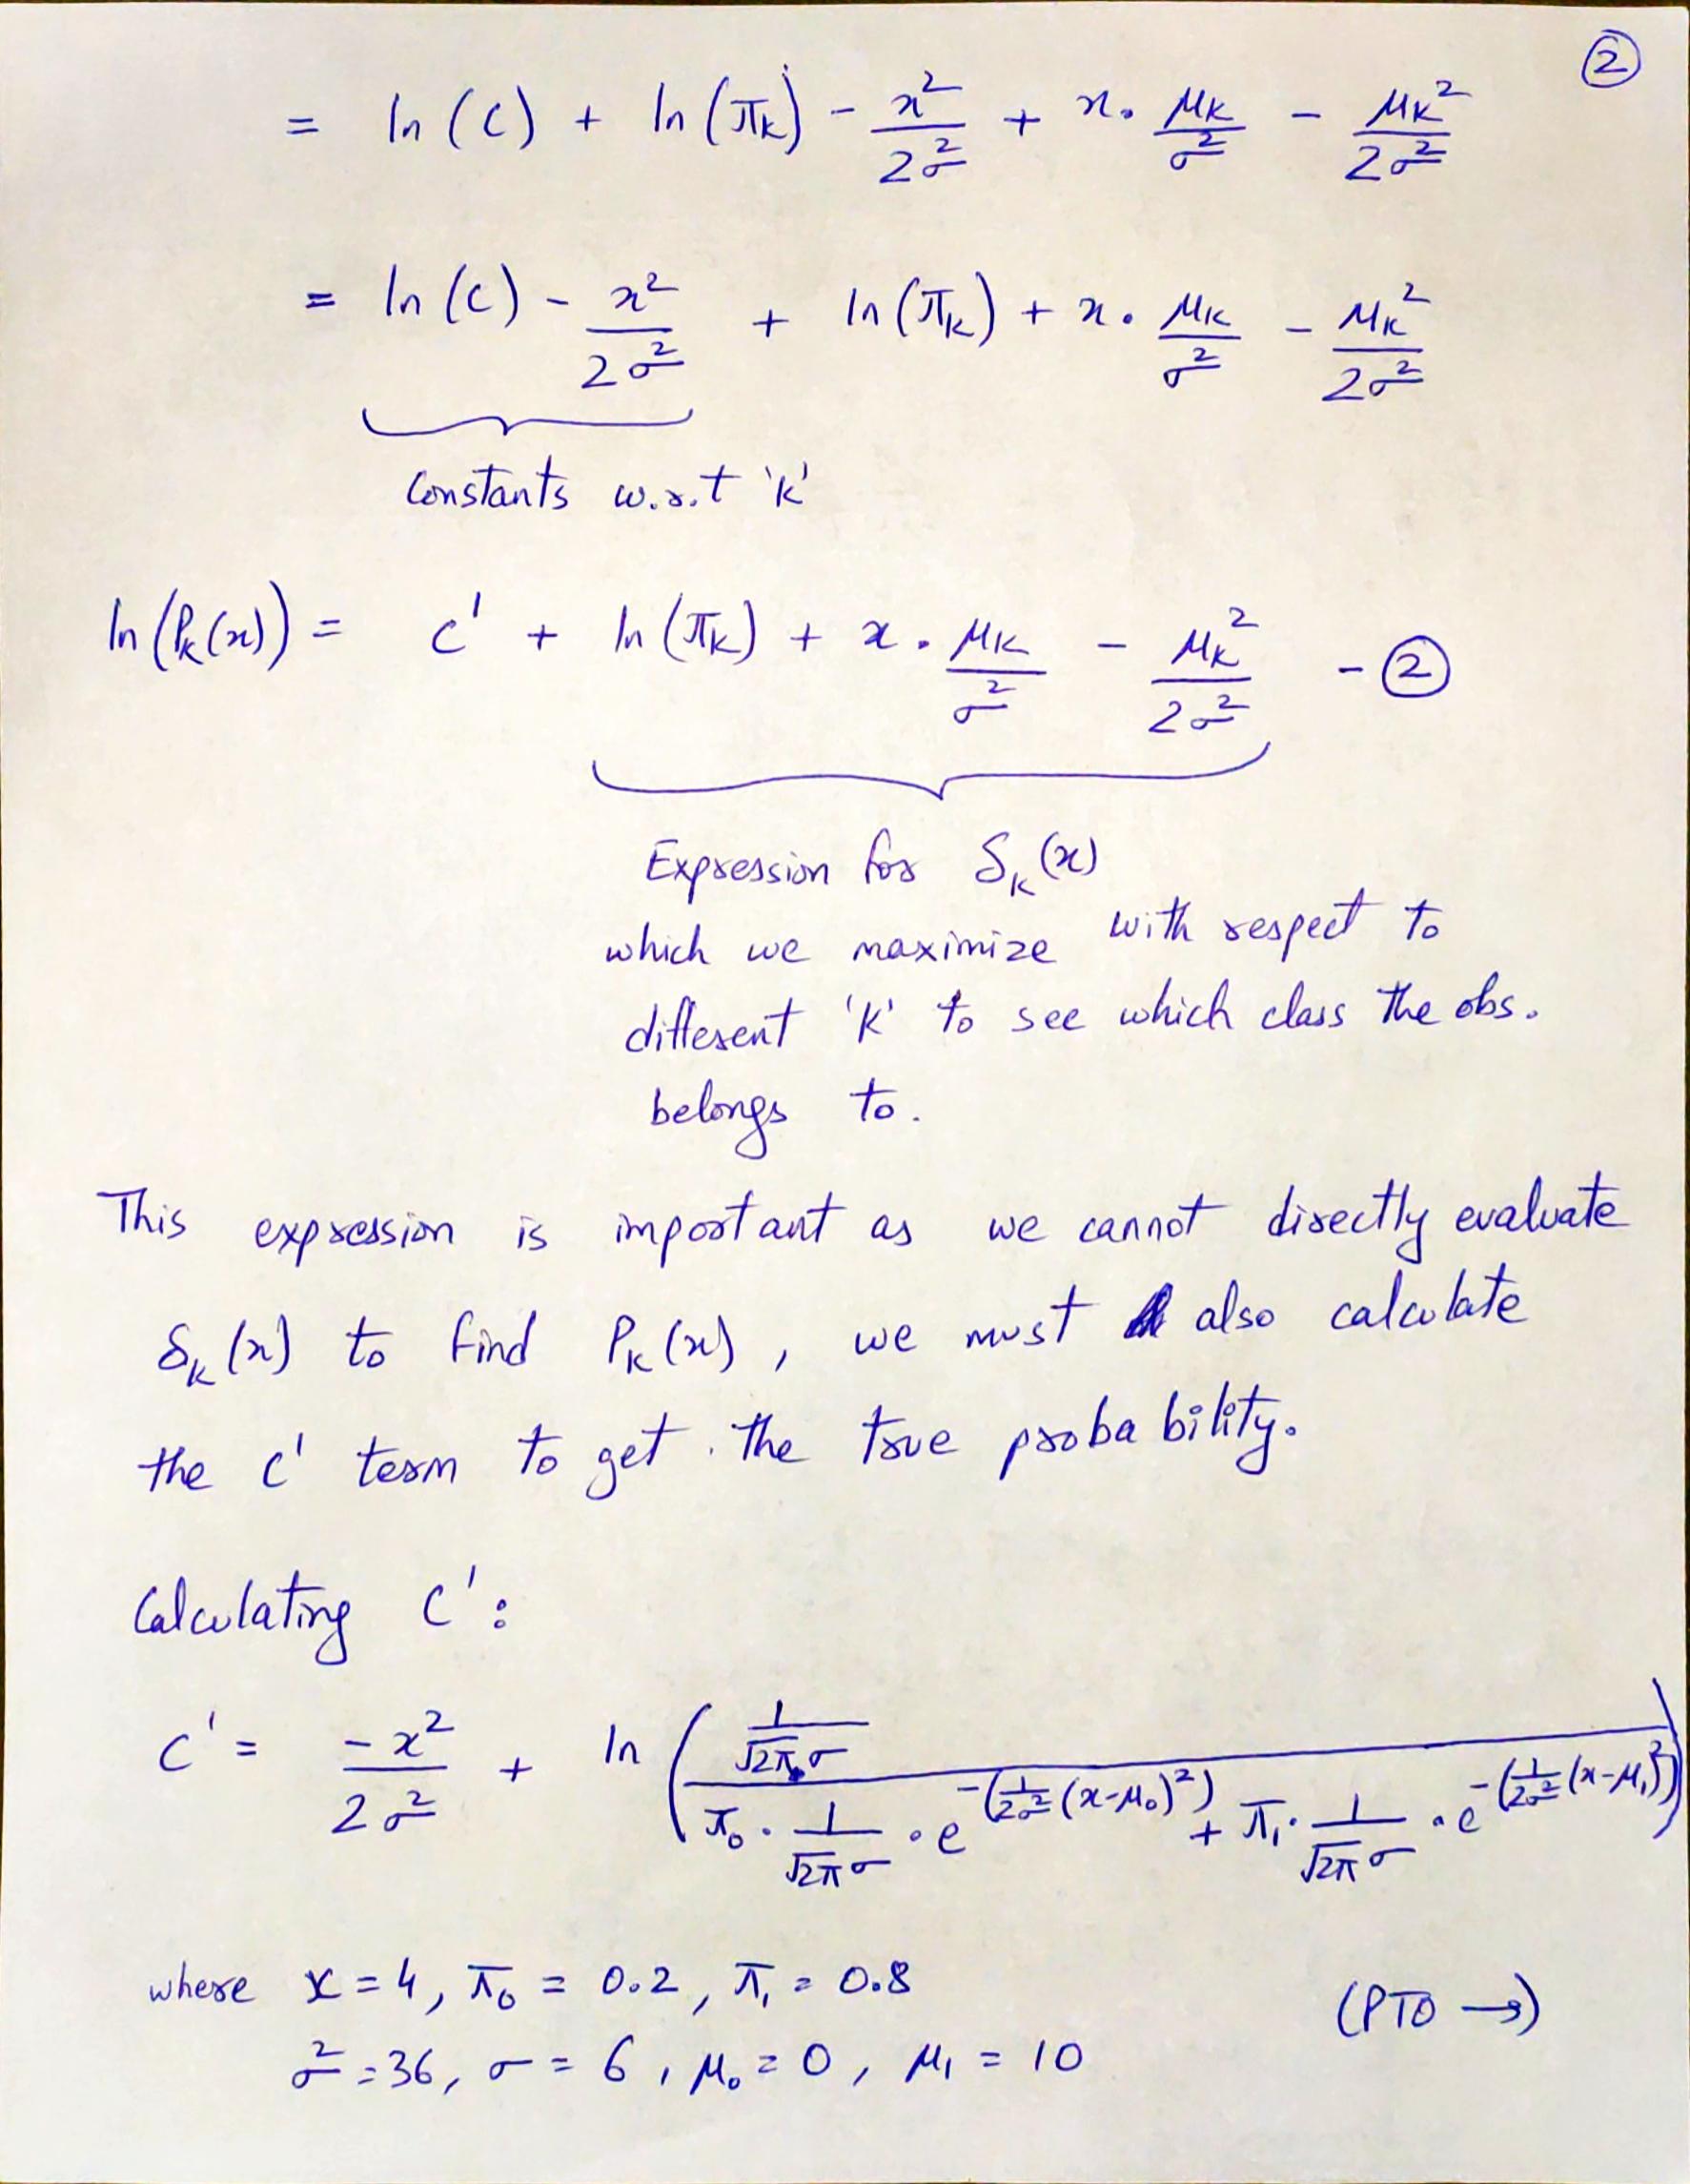 ②
= ln (C) + ln (πₖ) - x²/2σ² + x. μₖ/σ² - μₖ²/2σ²
= ln (C) - x²/2σ² + ln (πₖ) + x. μₖ/σ² - μₖ²/2σ²
Constants w.r.t 'k'
ln (Pₖ(x)) = C' + ln (πₖ) + x. μₖ/σ² - μₖ²/2σ² - ②
Expression for δₖ(x)
which we maximize with respect to
different 'k' to see which class the obs.
belongs to.
This expression is important as we cannot directly evaluate
δₖ(x) to find Pₖ(x), we must also calculate
the C' term to get the true probability.
Calculating C':
C' = -x²/2σ² + ln ( (1/√2π σ) / (π₀ . 1/√2π σ . e^-(1/2σ² (x-μ₀)²) + π₁ . 1/√2π σ . e^-(1/2σ² (x-μ₁)²)) )
where x = 4, π₀ = 0.2, π₁ = 0.8
(PTO →)
σ² = 36, σ = 6, μ₀ = 0, μ₁ = 10